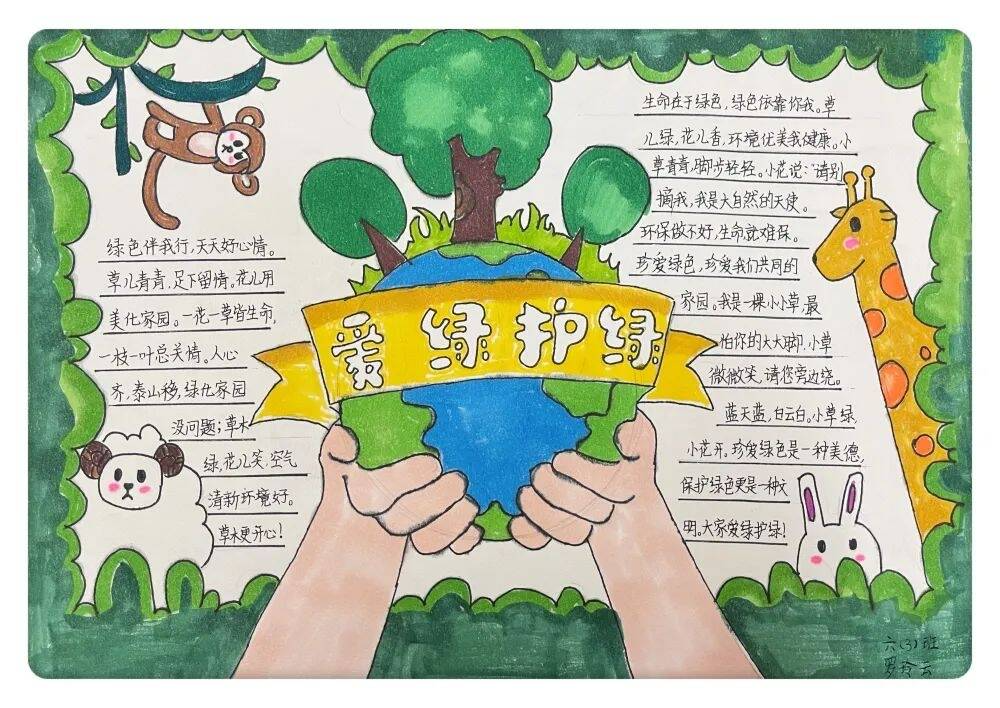 爱绿护绿
绿色伴我行,天天好心情。
草儿青青,足下留情。花儿用
美化家园。一花一草皆生命,
一枝一叶总关情。人心
齐,泰山移,绿化家园
没问题;草木
绿,花儿笑,空气
清新环境好。
草木更开心!
生命在于绿色,绿色依靠你我。草
儿绿,花儿香,环境优美我健康。小
草青青,脚步轻轻。小花说:“请别
摘我,我是大自然的天使。
环保做不好,生命就难保。
珍爱绿色,珍爱我们共同的
家园。我是一棵小小草,最
怕你的大大脚,小草
微微笑,请您旁边绕。
蓝天蓝,白云白。小草绿,
小花开。珍爱绿色是一种美德,
保护绿色更是一种文
明。大家爱绿护绿!
六(3)班
罗玲云